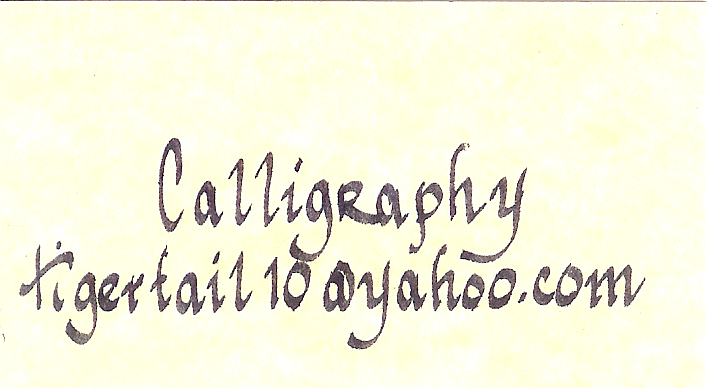 Calligraphy
tigertail10@yahoo.com